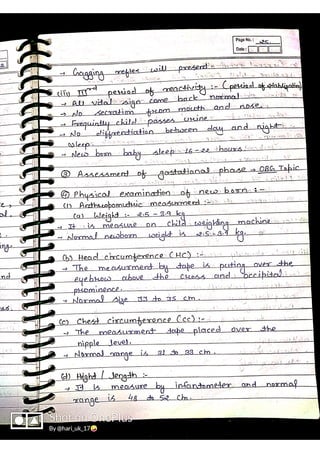 Page No. :
Date :
→ Gagging reflex will present :-
(iii) IIIrd period of reactivity :- (period of stabilization)
→ All vital sign come back normal
→ No secration from mouth and nose.
→ Frequintly child passes urine
→ No diffrentiation between day and night
sleep
→ New born baby sleep 16-22 hours
③ Assessment of gastational phase → OBG Topic
④ Physical examination of new born :-
(1) Anthropometric measurment :-
(a) Weight :- 2.5 - 3.9 kg
→ It is measure on child weighting machine
→ Normal newborn weight is 2.5-3.9 kg.
(b) Head circumference (HC) :-
→ The measurment by tape is puting over the
eyebrow above the and occipital
prominence.
→ Normal size 33 to 35 cm.
(c) Chest circumference (CC) :-
→ The measurment tape placed over the
nipple level.
→ Normal range is 31 to 33 cm.
(d) Hight / length :-
→ It is measure by infantometer and normal
range is 48 to 52 cm.
Shot on OnePlus
By @hari_uk_17